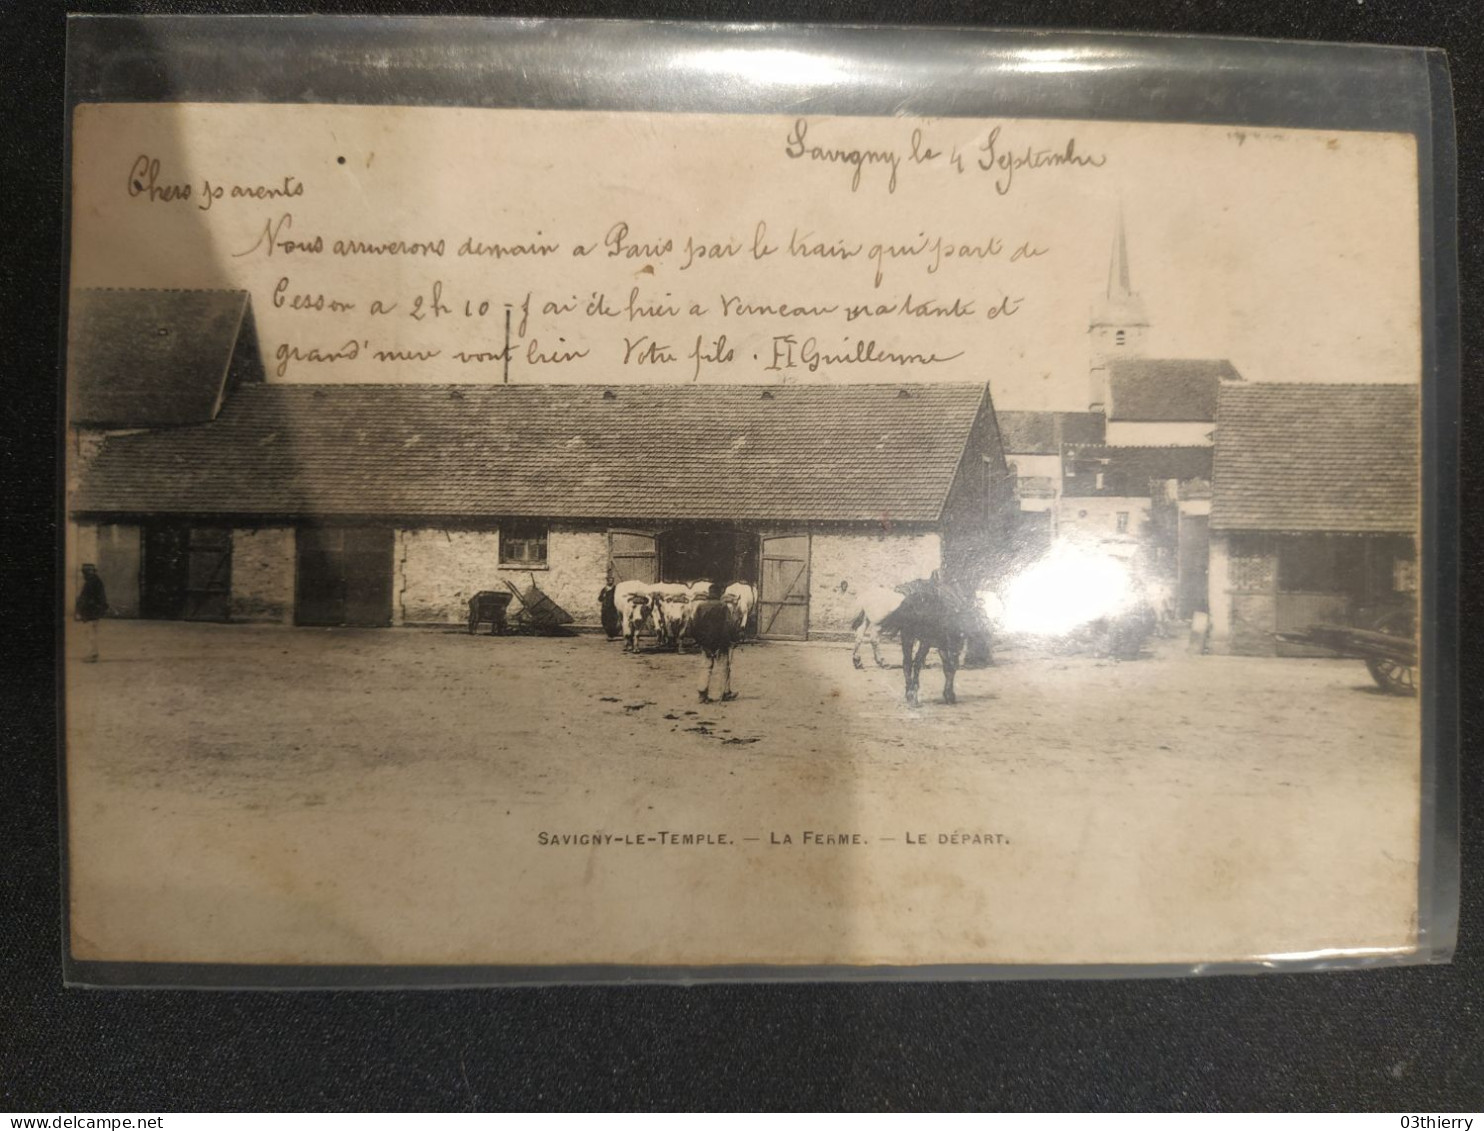 Savigny le 4 Septembre
Chers parents
Nous arriverons demain a Paris par le train qui part de
Cesson a 2h 10 - J'ai été hier a Verneau ma tante et
grand'mere vont bien Votre fils. H Guillerme
SAVIGNY-LE-TEMPLE. — LA FERME. — LE DÉPART.
03thierry